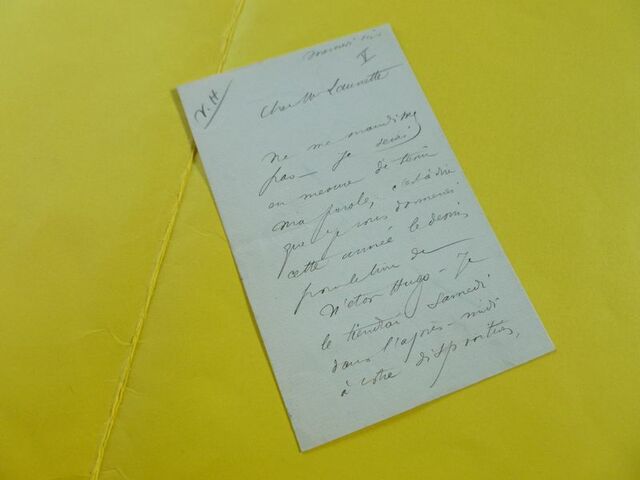 mercredi soir
V
V. H
Cher Mr Launette
Ne me maudissez
pas — Je serai
en mesure de tenir
ma parole, c'est à dire
que je vous donnerai
cette année le dessin
pour le livre de
Victor Hugo — Je
le tiendrai Samedi
dans l'après-midi
à votre disposition,